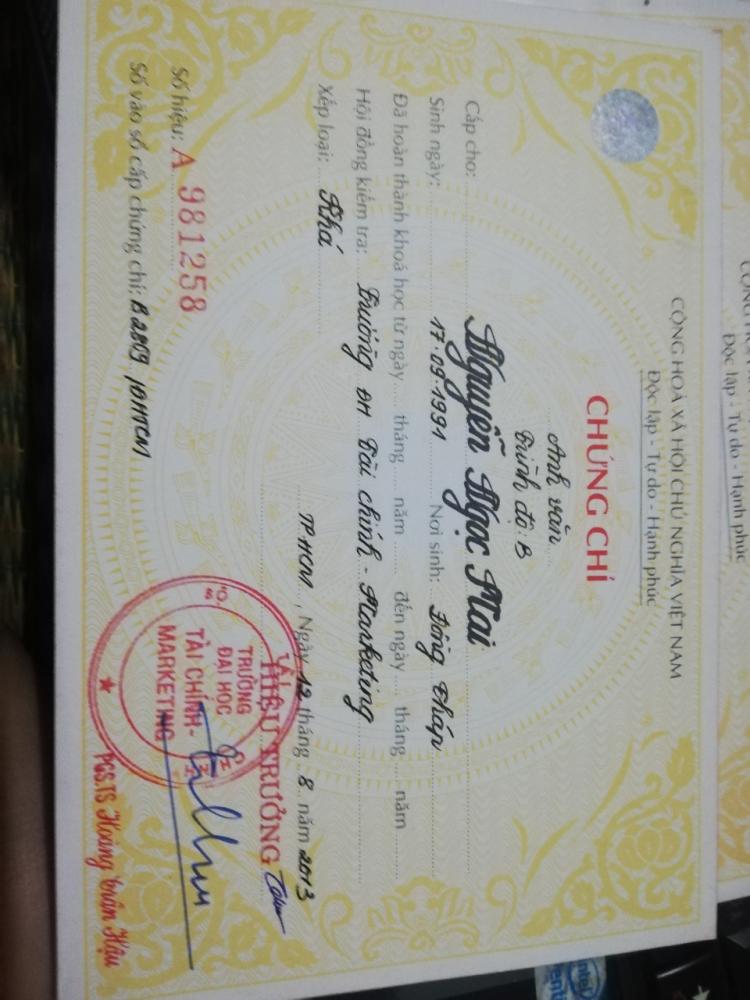 CỘNG HOÀ XÃ HỘI CHỦ NGHĨA VIỆT NAM
Độc lập - Tự do - Hạnh phúc
CHỨNG CHỈ
Anh văn
Trình độ: B
Cấp cho: Nguyễn Ngọc Mai
Sinh ngày: 17.09.1991 Nơi sinh: Đồng Tháp
Đã hoàn thành khoá học từ ngày..... tháng..... năm ........ đến ngày..... tháng..... năm ........
Hội đồng kiểm tra: Trường ĐH Tài chính - Marketing
Xếp loại: Khá
TP.HCM, Ngày 12 tháng 8 năm 2013
HIỆU TRƯỞNG
TRƯỜNG
ĐẠI HỌC
TÀI CHÍNH -
MARKETING
PGS.TS Hoàng Trần Hậu
Số hiệu: A 981258
Số vào sổ cấp chứng chỉ: B2809
Độc lập - Tự do - Hạnh phúc
intel